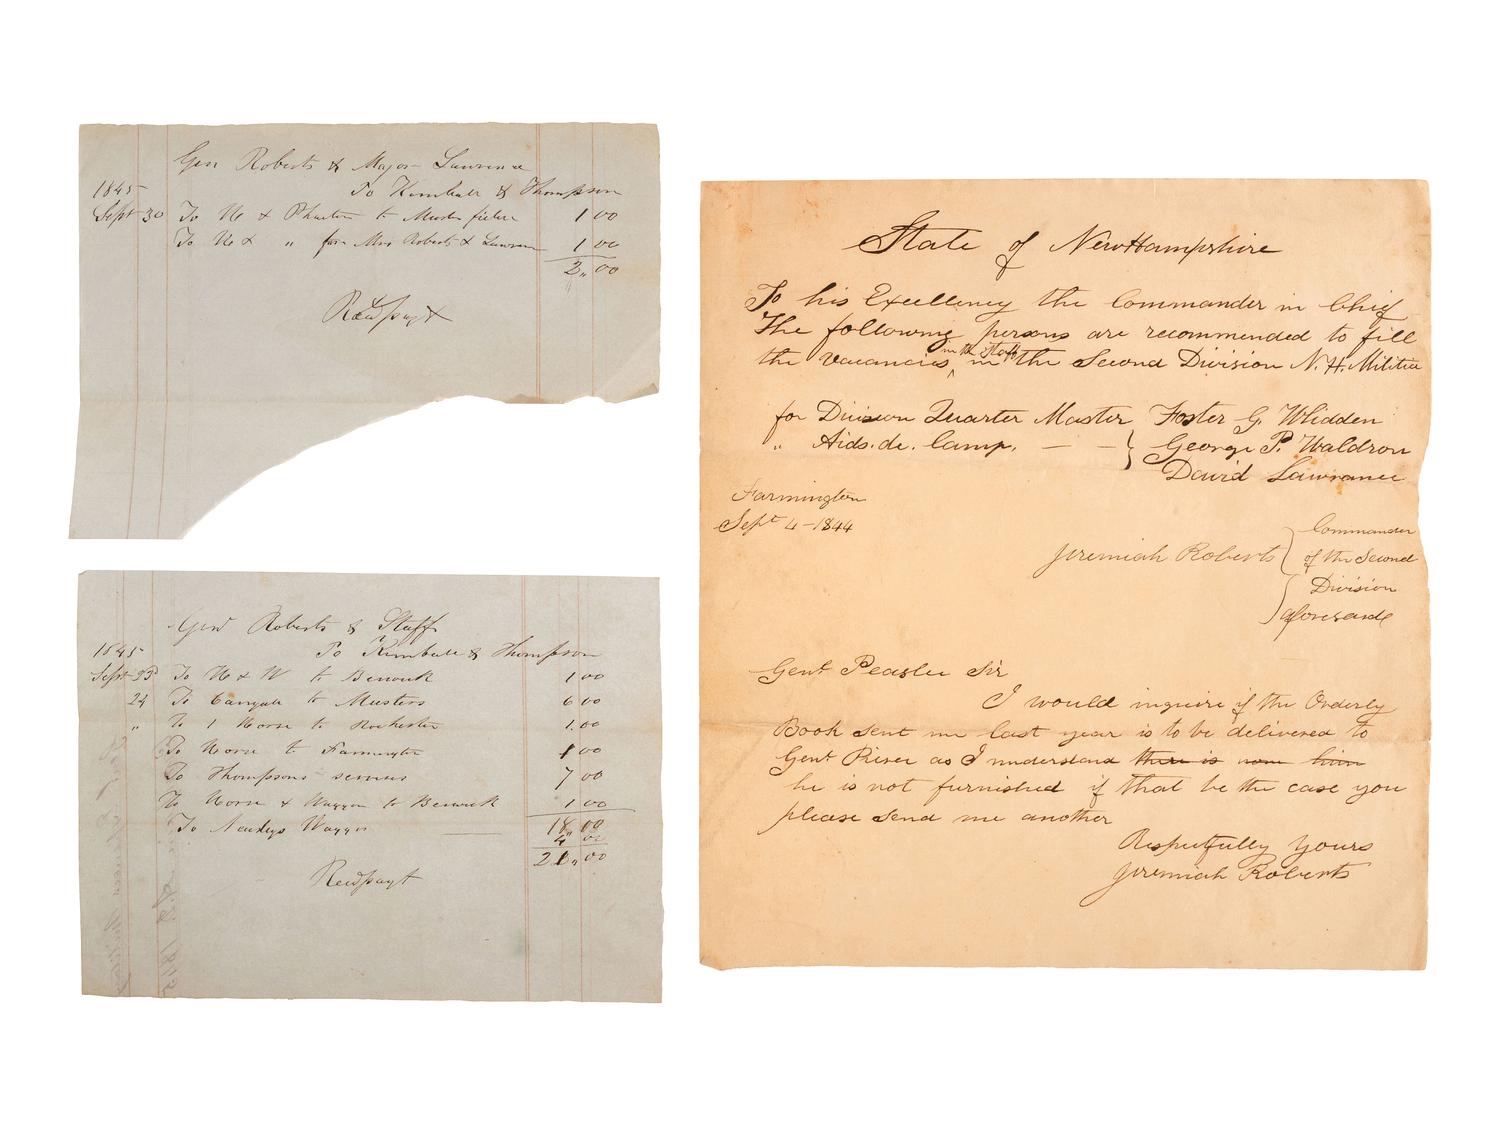 Genl Roberts & Major Lawrence
1845 To Kimball & Thompson
Sept 30 To H & Phaeton to Muster field 1 00
To H & " for Mrs Roberts & Lawrence 1 00
2,,00
Recd payt
Genl Roberts & Staff
1845 To Kimball & Thompson
Sept 23 To H & W to Berwick 1 00
24 To Carryall to Musters 6 00
" To 1 Horse to Rochester 1.00
To Horse to Farmington 1 00
To Thompsons services 7 00
To Horse & Waggon to Berwick 1 00
To Waggon 18,,00
4 00
2 ,,00
Recd payt
State of New Hampshire
To his Excellency the Commander in Chief
The following persons are recommended to fill
the vacancies in the Staff in the Second Division N. H. Militia
for Division Quarter Master Foster G. Whidden
" Aids. de. Camp. — — } George P. Waldron
David Lawrance
Farmington
Sept 4 - 1844
Jeremiah Roberts { Commander
of the Second
Division
aforesaid
Genl Peaslee Sir
I would inquire if the Orderly
Book sent me last year is to be delivered to
Genl as I understand there is none him
he is not furnished if that be the case you
please send me another
Respectfully Yours
Jeremiah Roberts